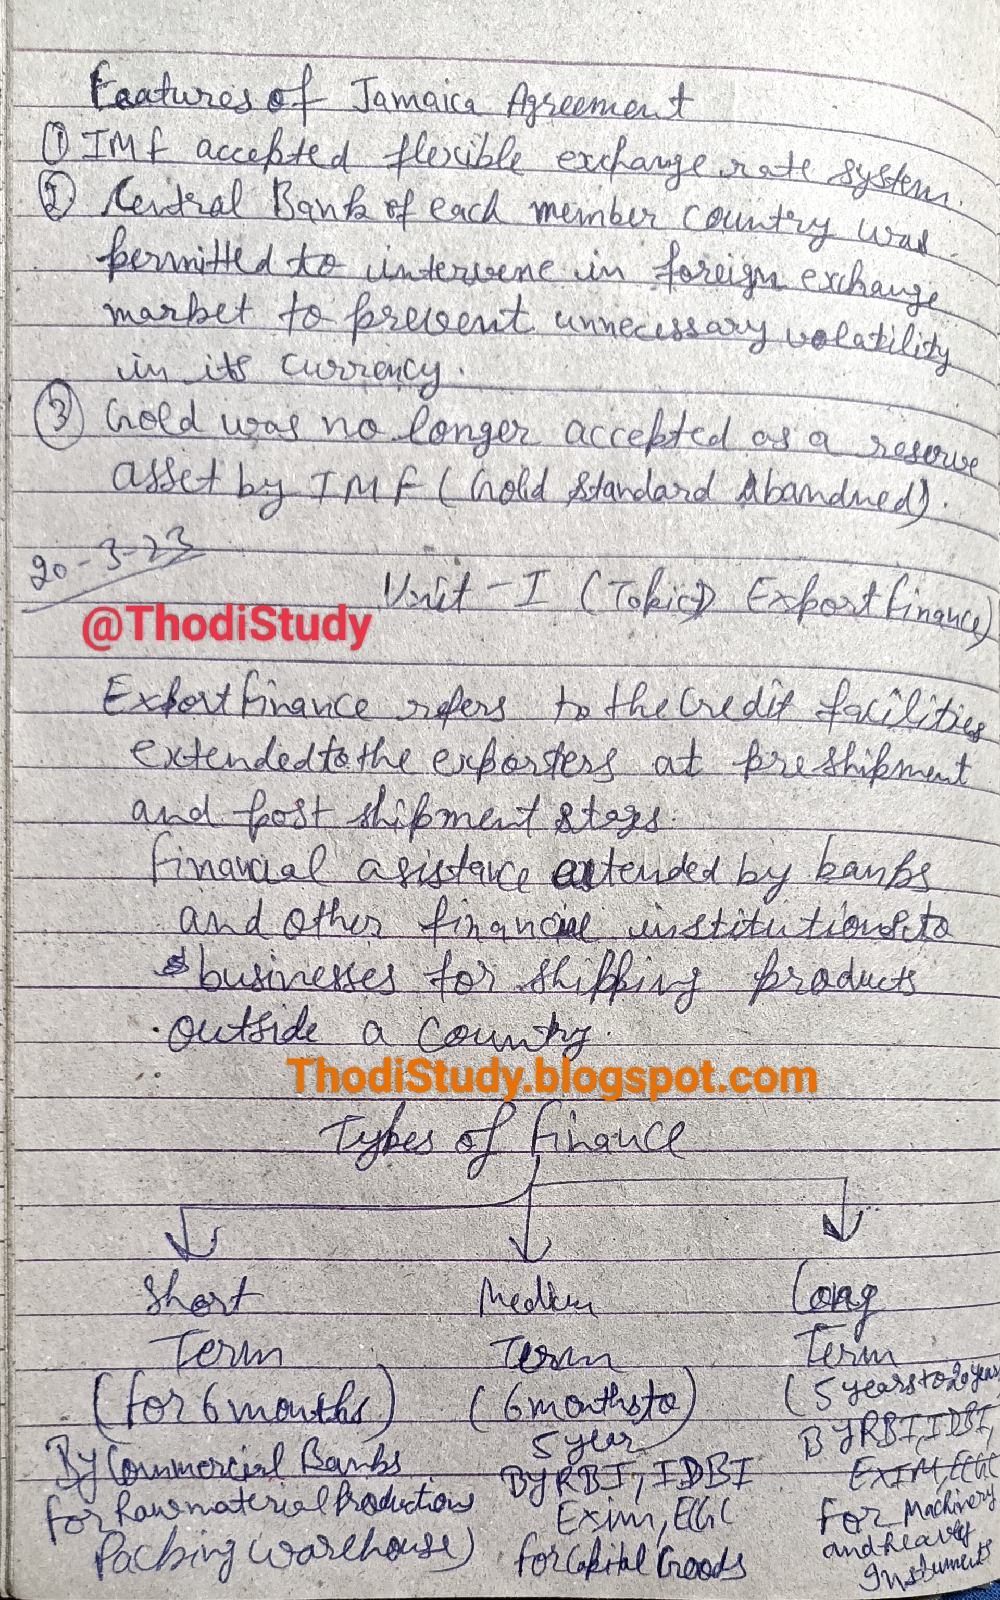 Features of Jamaica Agreement
① IMF accepted flexible exchange rate system.
② Central Bank of each member country was
permitted to intervene in foreign exchange
market to prevent unnecessary volatility
in its currency.
③ Gold was no longer accepted as a reserve
asset by IMF (Gold Standard Abamdned).
20-3-23
Unit-I (Topic) Export Finance)
@ThodiStudy
Export Finance refers to the Credit facilities
extended to the exporters at pre shipment
and post shipment stags.
Financial asistance extended by banks
and other financial institutions to
businesses for shipping products
outside a country.
ThodiStudy.blogspot.com
Types of finance
Short Medium Long
Term Term Term
(for 6 months) (6 months to) (5 years to 20 years
5 year
By Commercial Banks By RBI, IDBI By RBI, IDBI,
Exim, ECGC EXIM, ECGC
For Raw material Productions for Capital Goods For Machinery
Packing warehouse) and heavy
Instuments